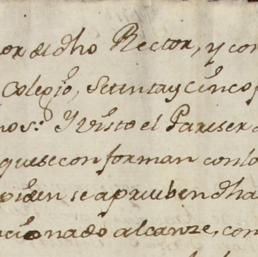 or de dho Rector, y con
Colegio, Setenta y cinco
nos: Y visto el Pareser
que se conforman con lo
piden se aprueben dha
cionado alcanze, con